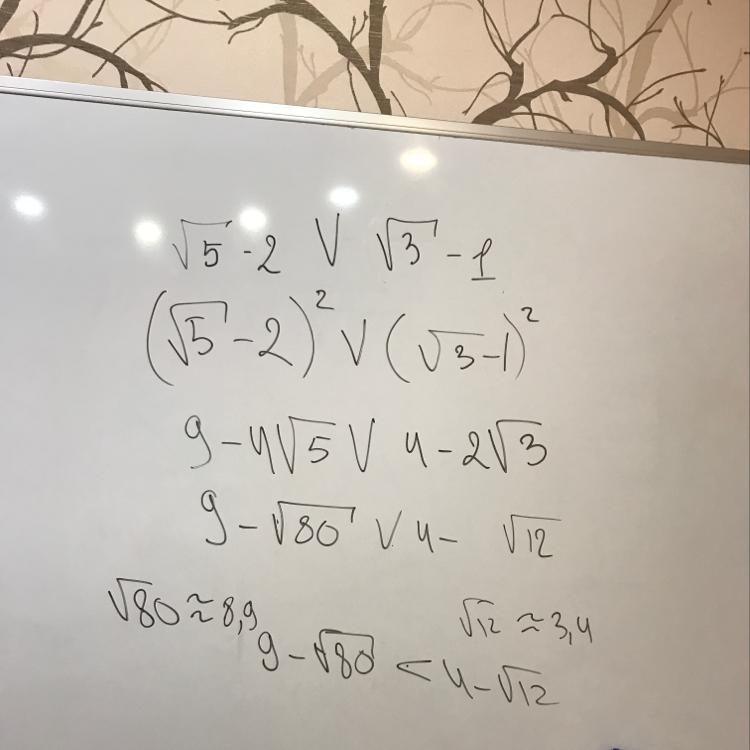 √5 - 2 V √3 - 1
(√5 - 2)² V (√3 - 1)²
9 - 4√5 V 4 - 2√3
9 - √80 V 4 - √12
√80 ≈ 8,9 √12 ≈ 3,4
9 - √80 < 4 - √12